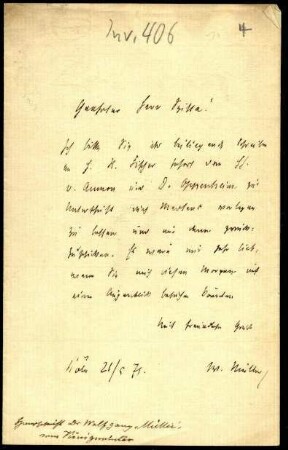 Inv. 406
4
Geehrter Herr
Ich bitte Sie das beiliegende Schreiben
an H. H. Fischer sofort von
v. Ammon und D. Oppenheim zu
Unterschrift durch vorlegen
zu lassen und mir dann zurück-
zuschicken. Es wäre mir sehr lieb,
wenn Sie mich diesen Morgen auf
einen Augenblick besuchen könnten
Mit freundlichem Gruß
Köln 71. W. Müller
Dr Wolfgang Müller
von Königswinter